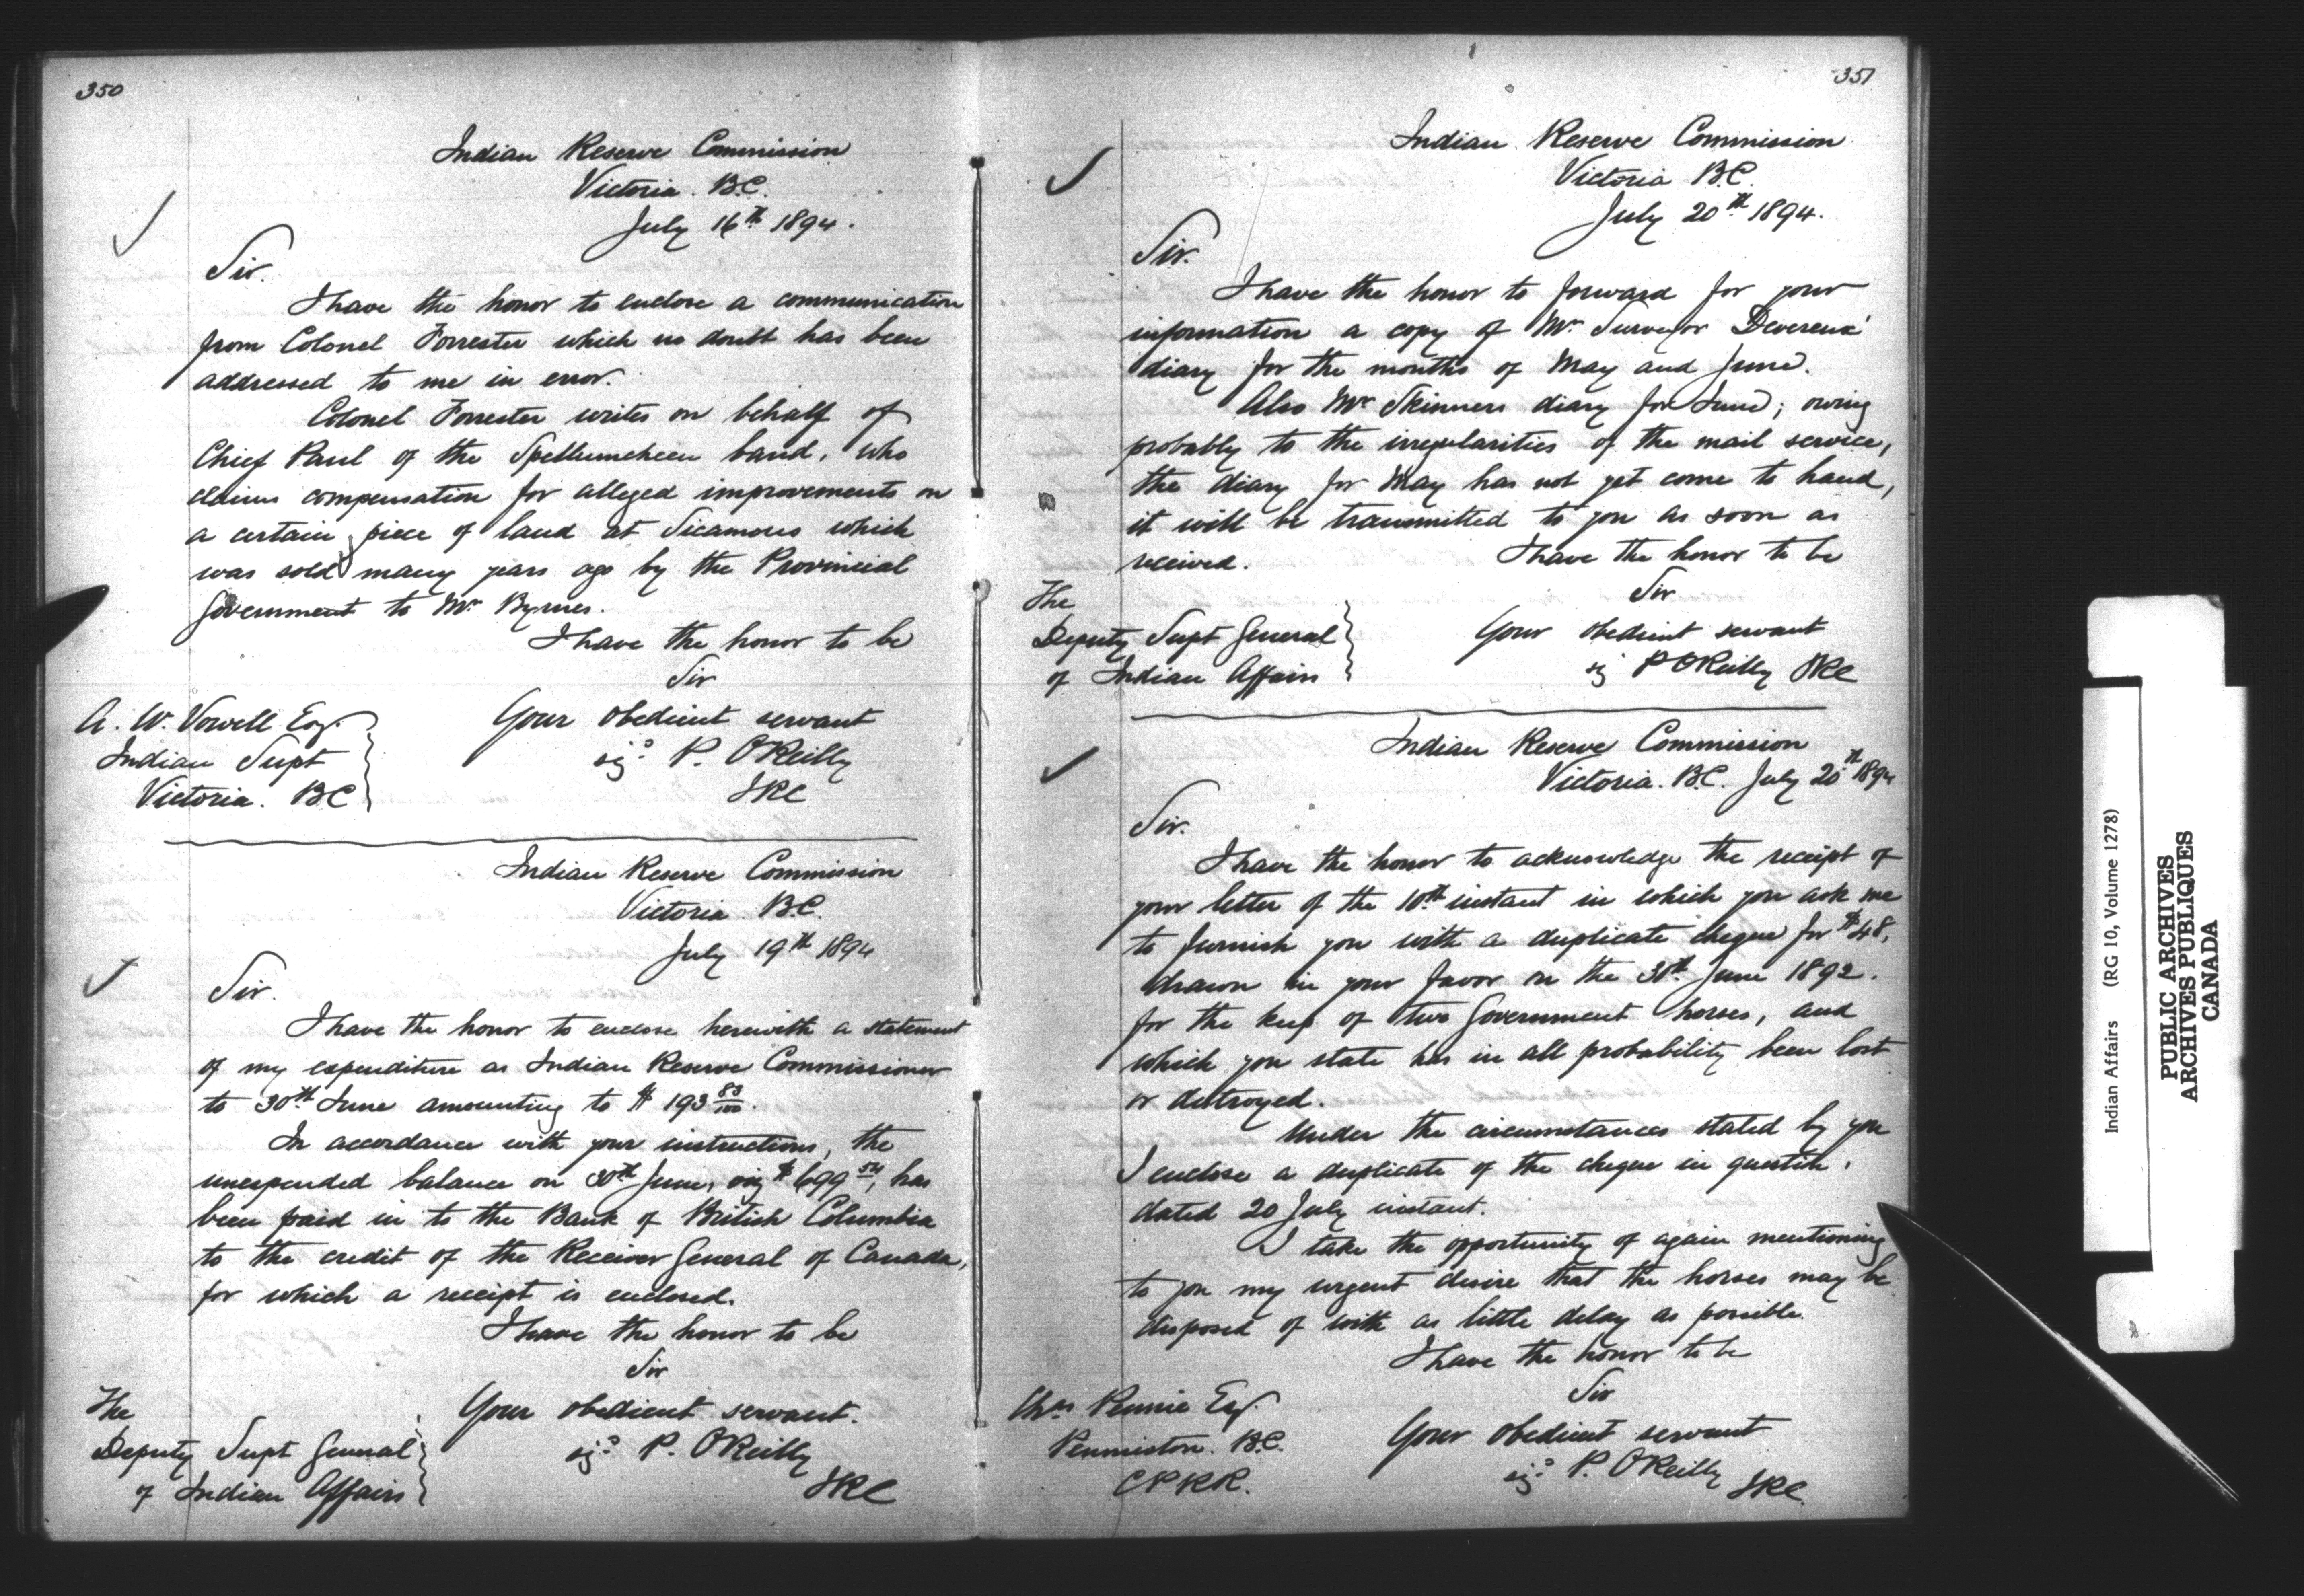 350
Indian Reserve Commission
Victoria. B.C.
July 16th 1894.
Sir.
I have the honor to enclose a communication
from Colonel Forrester which no doubt has been
addressed to me in error.
Colonel Forrester writes on behalf of
Chief Paul of the Spellumcheen band, who
claims compensation for alleged improvements on
a certain piece of land at Sicamous which
was sold many years ago by the Provincial
Government to Mr Byrnes.
I have the honor to be
Sir
Your obedient servant
sigd P. O'Reilly
IRC
A. W. Vowell Esq.
Indian Supt
Victoria. BC
Indian Reserve Commission
Victoria. B.C.
July 19th 1894
Sir.
I have the honor to enclose herewith a statement
of my expenditure as Indian Reserve Commissioner
to 30th June amounting to $ 193 83/100.
In accordance with your instructions, the
unexpended balance on 30th June, viz $699 54, has
been paid in to the Bank of British Columbia
to the credit of the Receiver General of Canada,
for which a receipt is enclosed.
I have the honor to be
Sir
Your obedient servant.
sigd P. O'Reilly
IRC
The
Deputy Supt General
of Indian Affairs
351
Indian Reserve Commission
Victoria B.C.
July 20th 1894.
Sir.
I have the honor to forward for your
information a copy of Mr Surveyor Devereux'
diary for the months of May and June.
Also Mr Skinners diary for June; owing
probably to the irregularities of the mail service,
the diary for May has not yet come to hand,
it will be transmitted to you as soon as
received.
I have the honor to be
Sir
Your obedient servant
sig P O'Reilly IRC
The
Deputy Supt General
of Indian Affairs
Indian Reserve Commission
Victoria. B.C. July 20th 1894
Sir.
I have the honor to acknowledge the receipt of
your letter of the 10th instant in which you ask me
to furnish you with a duplicate cheque for $48,
drawn in your favor on the 30th June 1892.
for the keep of two Government horses, and
which you state has in all probability been lost
or destroyed.
Under the circumstances stated by you
I enclose a duplicate of the cheque in questin,
dated 20 July instant.
I take the opportunity of again mentioning
to you my urgent desire that the horses may be
disposed of with as little delay as possible.
I have the honor to be
Sir
Your obedient servant
sigd P. O'Reilly
IRC
Chas Pennie Esq.
Penniston. B.C.
CPRR.
Indian Affairs (RG 10, Volume 1278)
PUBLIC ARCHIVES
ARCHIVES PUBLIQUES
CANADA